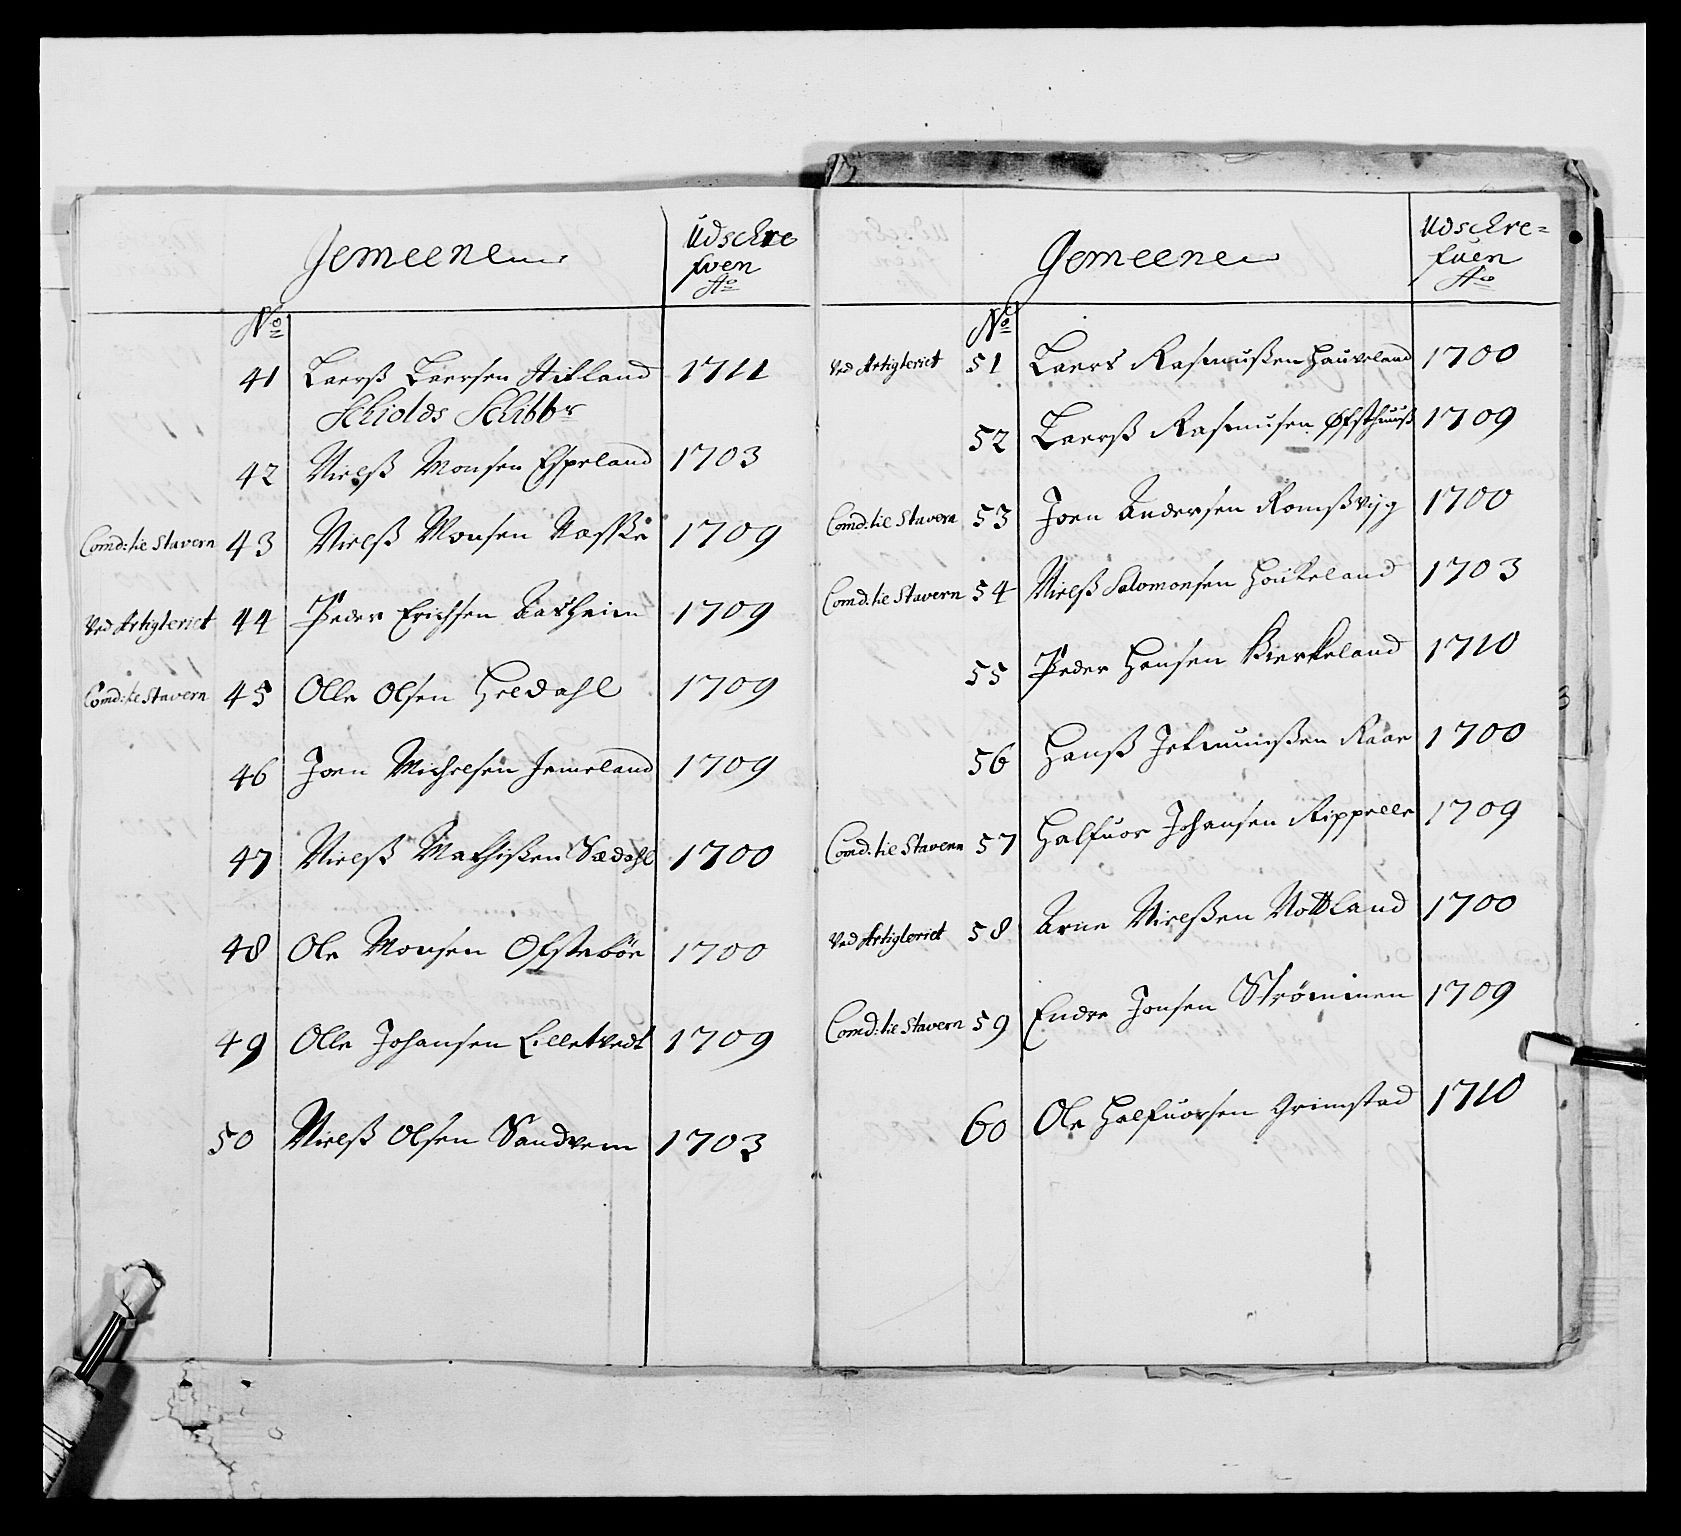 Gemeene
Udschre
fven
Ao
No
41 Laerß Laersen Hilland 1711
Schiolds Schibbr
42 Nielß Monsen Espeland 1703
Comd: tie Stavern 43 Nielß Monsen 1709
Ved Artigleriet 44 Peder Erichsen 1709
Comd: tie Stavern 45 Olle Olsen Heldahl 1709
46 Joen Michelsen 1709
47 Nielß Mathißen Sædahl 1700
48 Ole Monsen Ofstebøe 1700
49 Olle Johansen Lilletvedt 1709
50 Nielß Olsen Sandvem 1703
Gemeene
Udschre=
fuen
Ao
No
Ved Artigleriet 51 Laers Rasmußen Hauveland 1700
52 Laerß Rasmusen Øfsthuuß 1709
Comd: tie Stavern 53 Joen Andersen Romßvijg 1700
Comd: tie Stavern 54 Nielß Salomonsen Houkeland 1703
55 Peder Hansen Birkeland 1710
56 Hanß Raae 1700
Comd: tie Stavern 57 Halfuor Johansen Rippelle 1709
Ved Artigleriet 58 Arne Nielßen Nottland 1700
Comd: tie Stavern 59 Endre Jonsen Strømmen 1709
60 Ole Halfuorsen Grimstad 1710